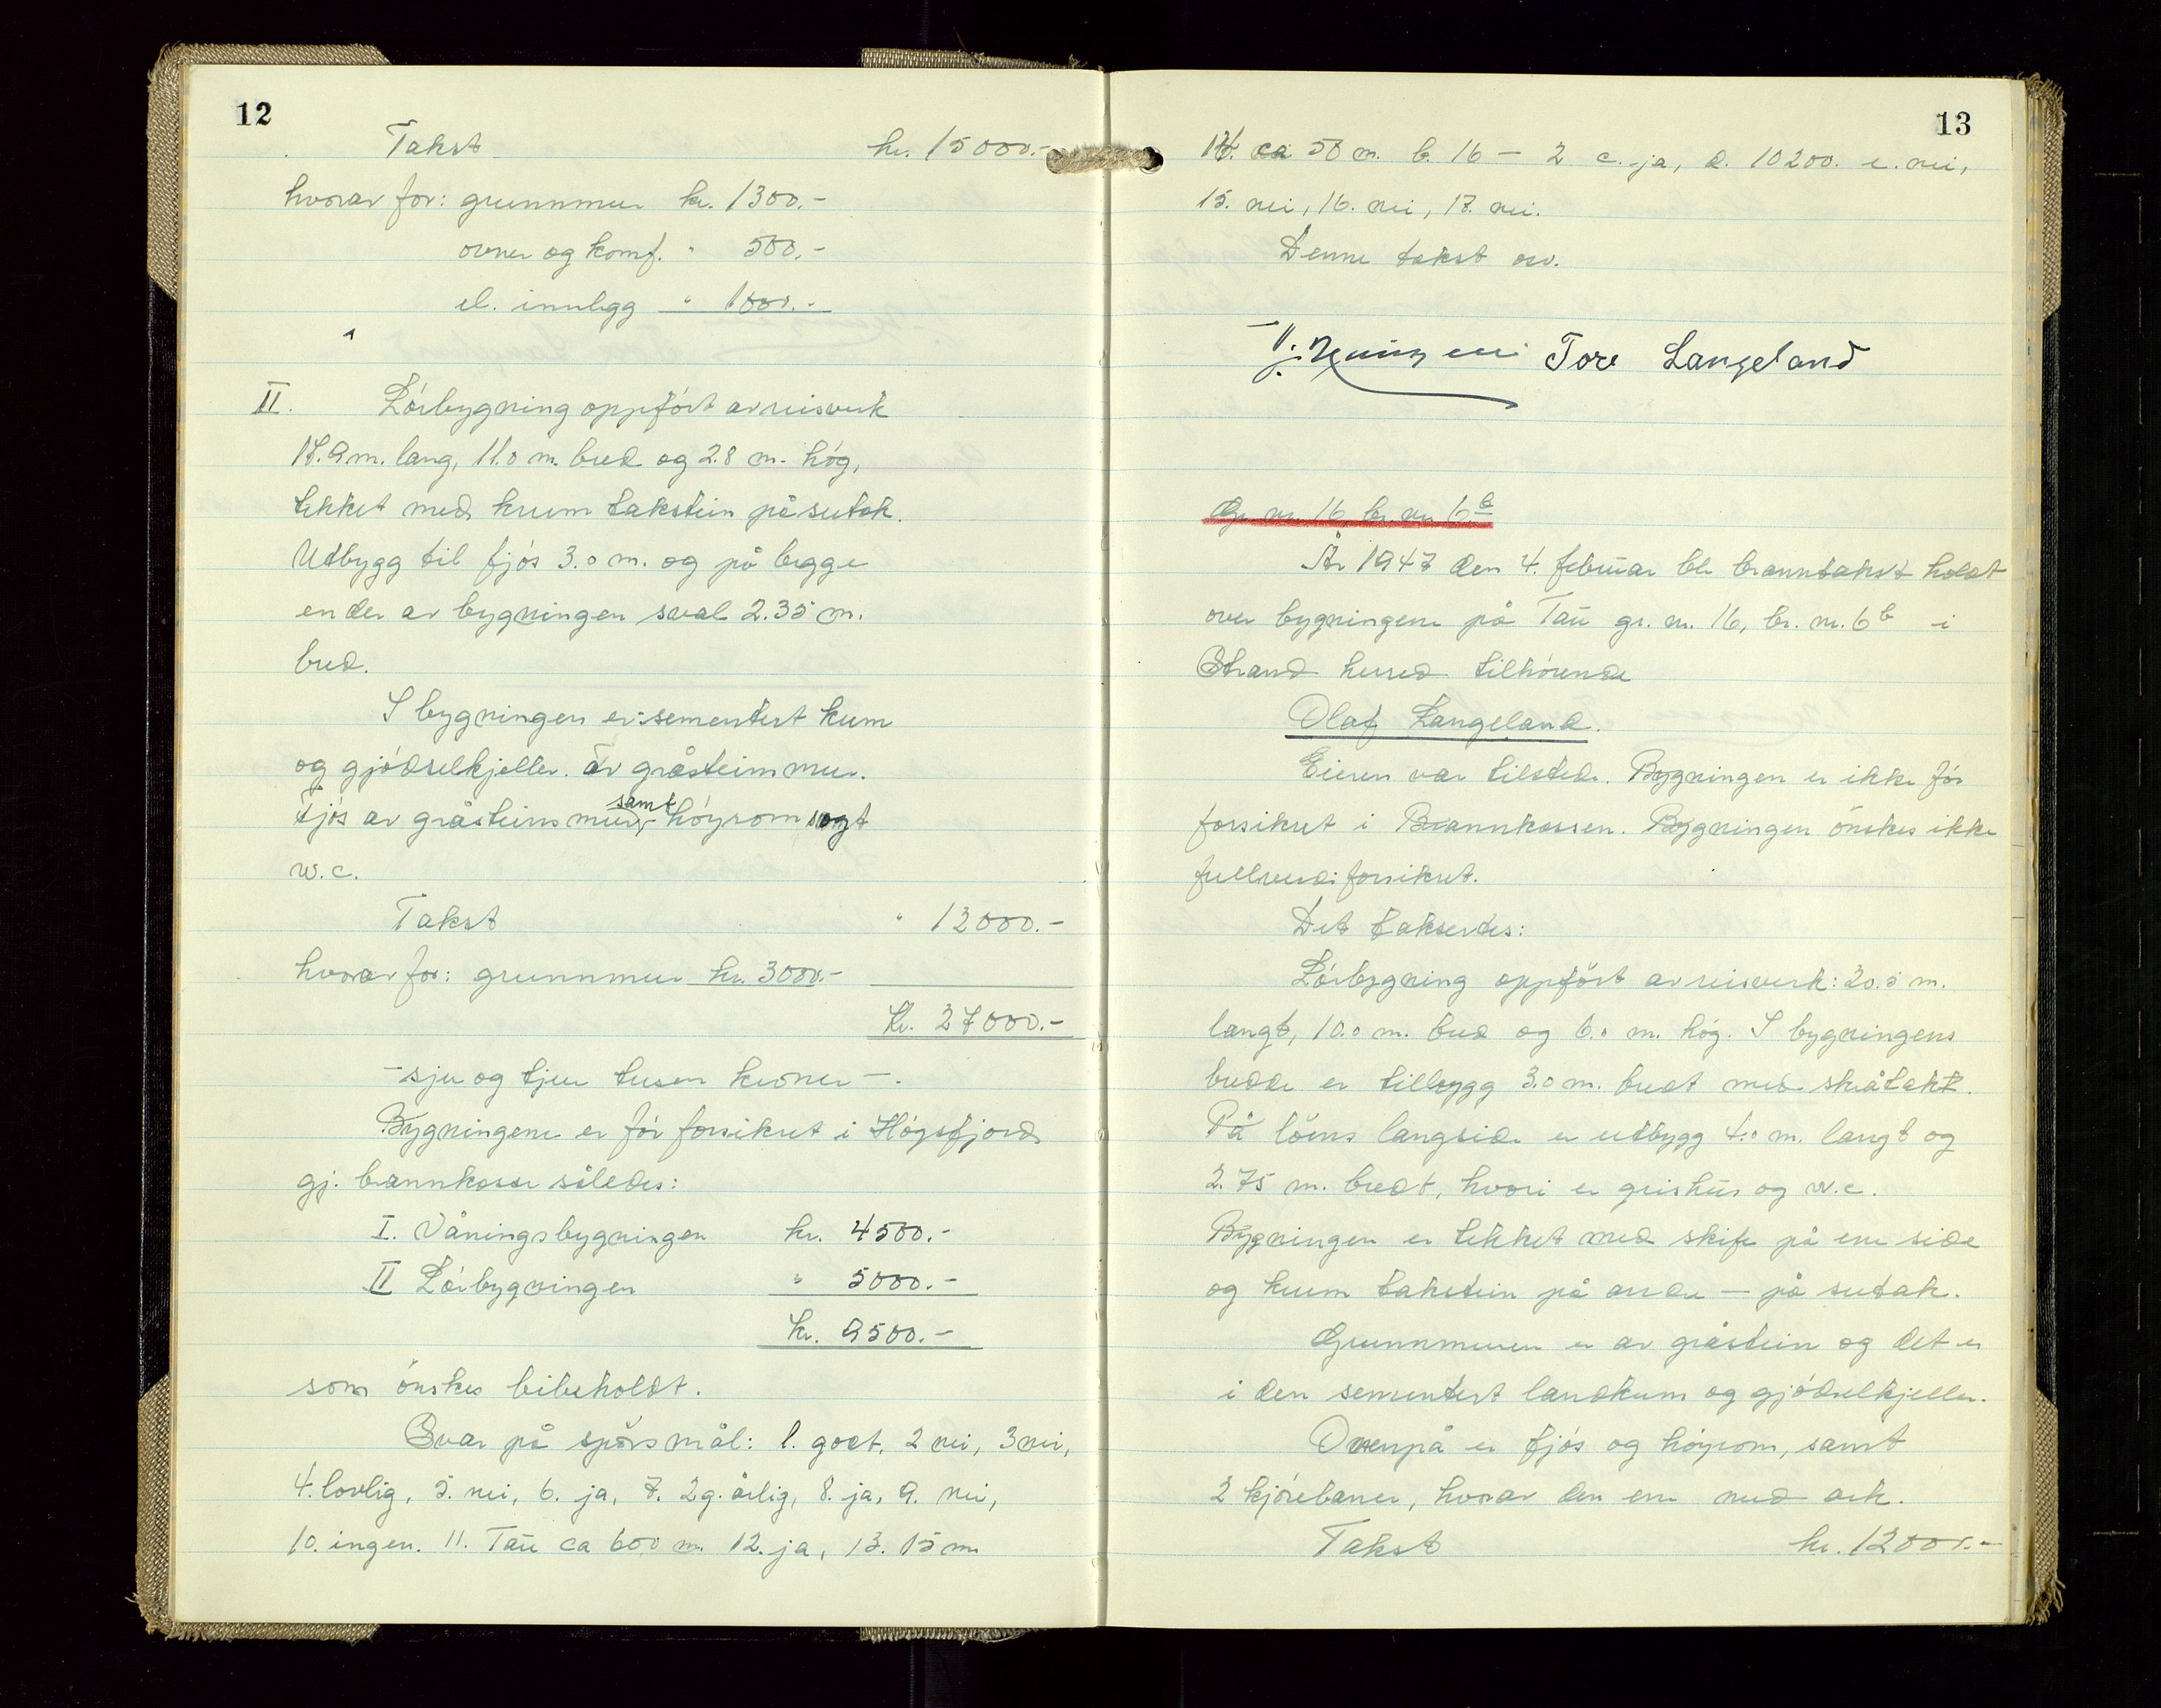 12
Takst kr. 15000.-
hvorav for: grunnmur kr. 1300.-
ovner og komf. " 500.-
el. innlegg " 1000.-
II. Lóbygning oppfórt av reisverk
17.9 m. lang, 11.0 m. bred og 2.8 m. hóg,
tekket med krum takstein på sutak.
Utbygg til fjós 3.0 m. og på begge
ender av bygningen sval 2.35 m.
bred.
I bygningen er: sementert kum
og gjódselkjeller. av gråsteinmur.
Fjós av gråsteinsmur, samt hóyrom
w.c.
Takst " 12000.-
hvorav for: grunnmur kr. 3000.-
Kr. 27000.-
- sju og tjue tusen kroner -.
Bygningene er fór forsikret i Hógsfjord
gj. brannkasse således:
I. Våningsbygningen kr. 4500.-
II Lóbygningen " 5000.-
kr. 9500.-
som ónskes bibeholdt.
Svar på spórsmål: 1. godt, 2 nei, 3 nei,
4. lovlig, 5. nei, 6. ja, 7. 2 g. årlig, 8. ja, 9. nei,
10. ingen. 11. Tau ca 600 m. 12. ja, 13. 15 m
13
14. ca 50 m. b. 16 - 2 c. ja, d. 10200. e. nei,
15. nei, 16. nei, 17. nei.
Denne takst osv.
Tore Langeland
Gr. nr. 16 br. nr. 6 b
År 1947 den 4. februar ble branntakst holdt
over bygningene på Tau gr. nr. 16, br. nr. 6 b i
Strand herred tilhórende
Olaf Langeland.
Eieren var tilstede. Bygningen er ikke fór
forsikret i Brannkassen. Bygningen ónskes ikke
fullverdiforsikret.
Det takseres:
Lóbygning oppfórt av reisverk: 20.5 m.
langt, 10.0 m. bred og 6.0 m. hóg. I bygningens
bredde er tilbygg 3.0 m. bredt med skråtakt.
På lóens langside er utbygg 4.0 m. langt og
2.75 m. bredt, hvori er grishus og w.c.
Bygningen er tekket med skifer på ene side
og krum takstein på andre - på sutak.
Grunnmuren er av gråstein og det er
i den sementert landkum og gjódselkjeller.
Ovenpå er fjós og hóyrom, samt
2 kjórebaner, hvorav den ene med ark.
Takst kr. 12000.-